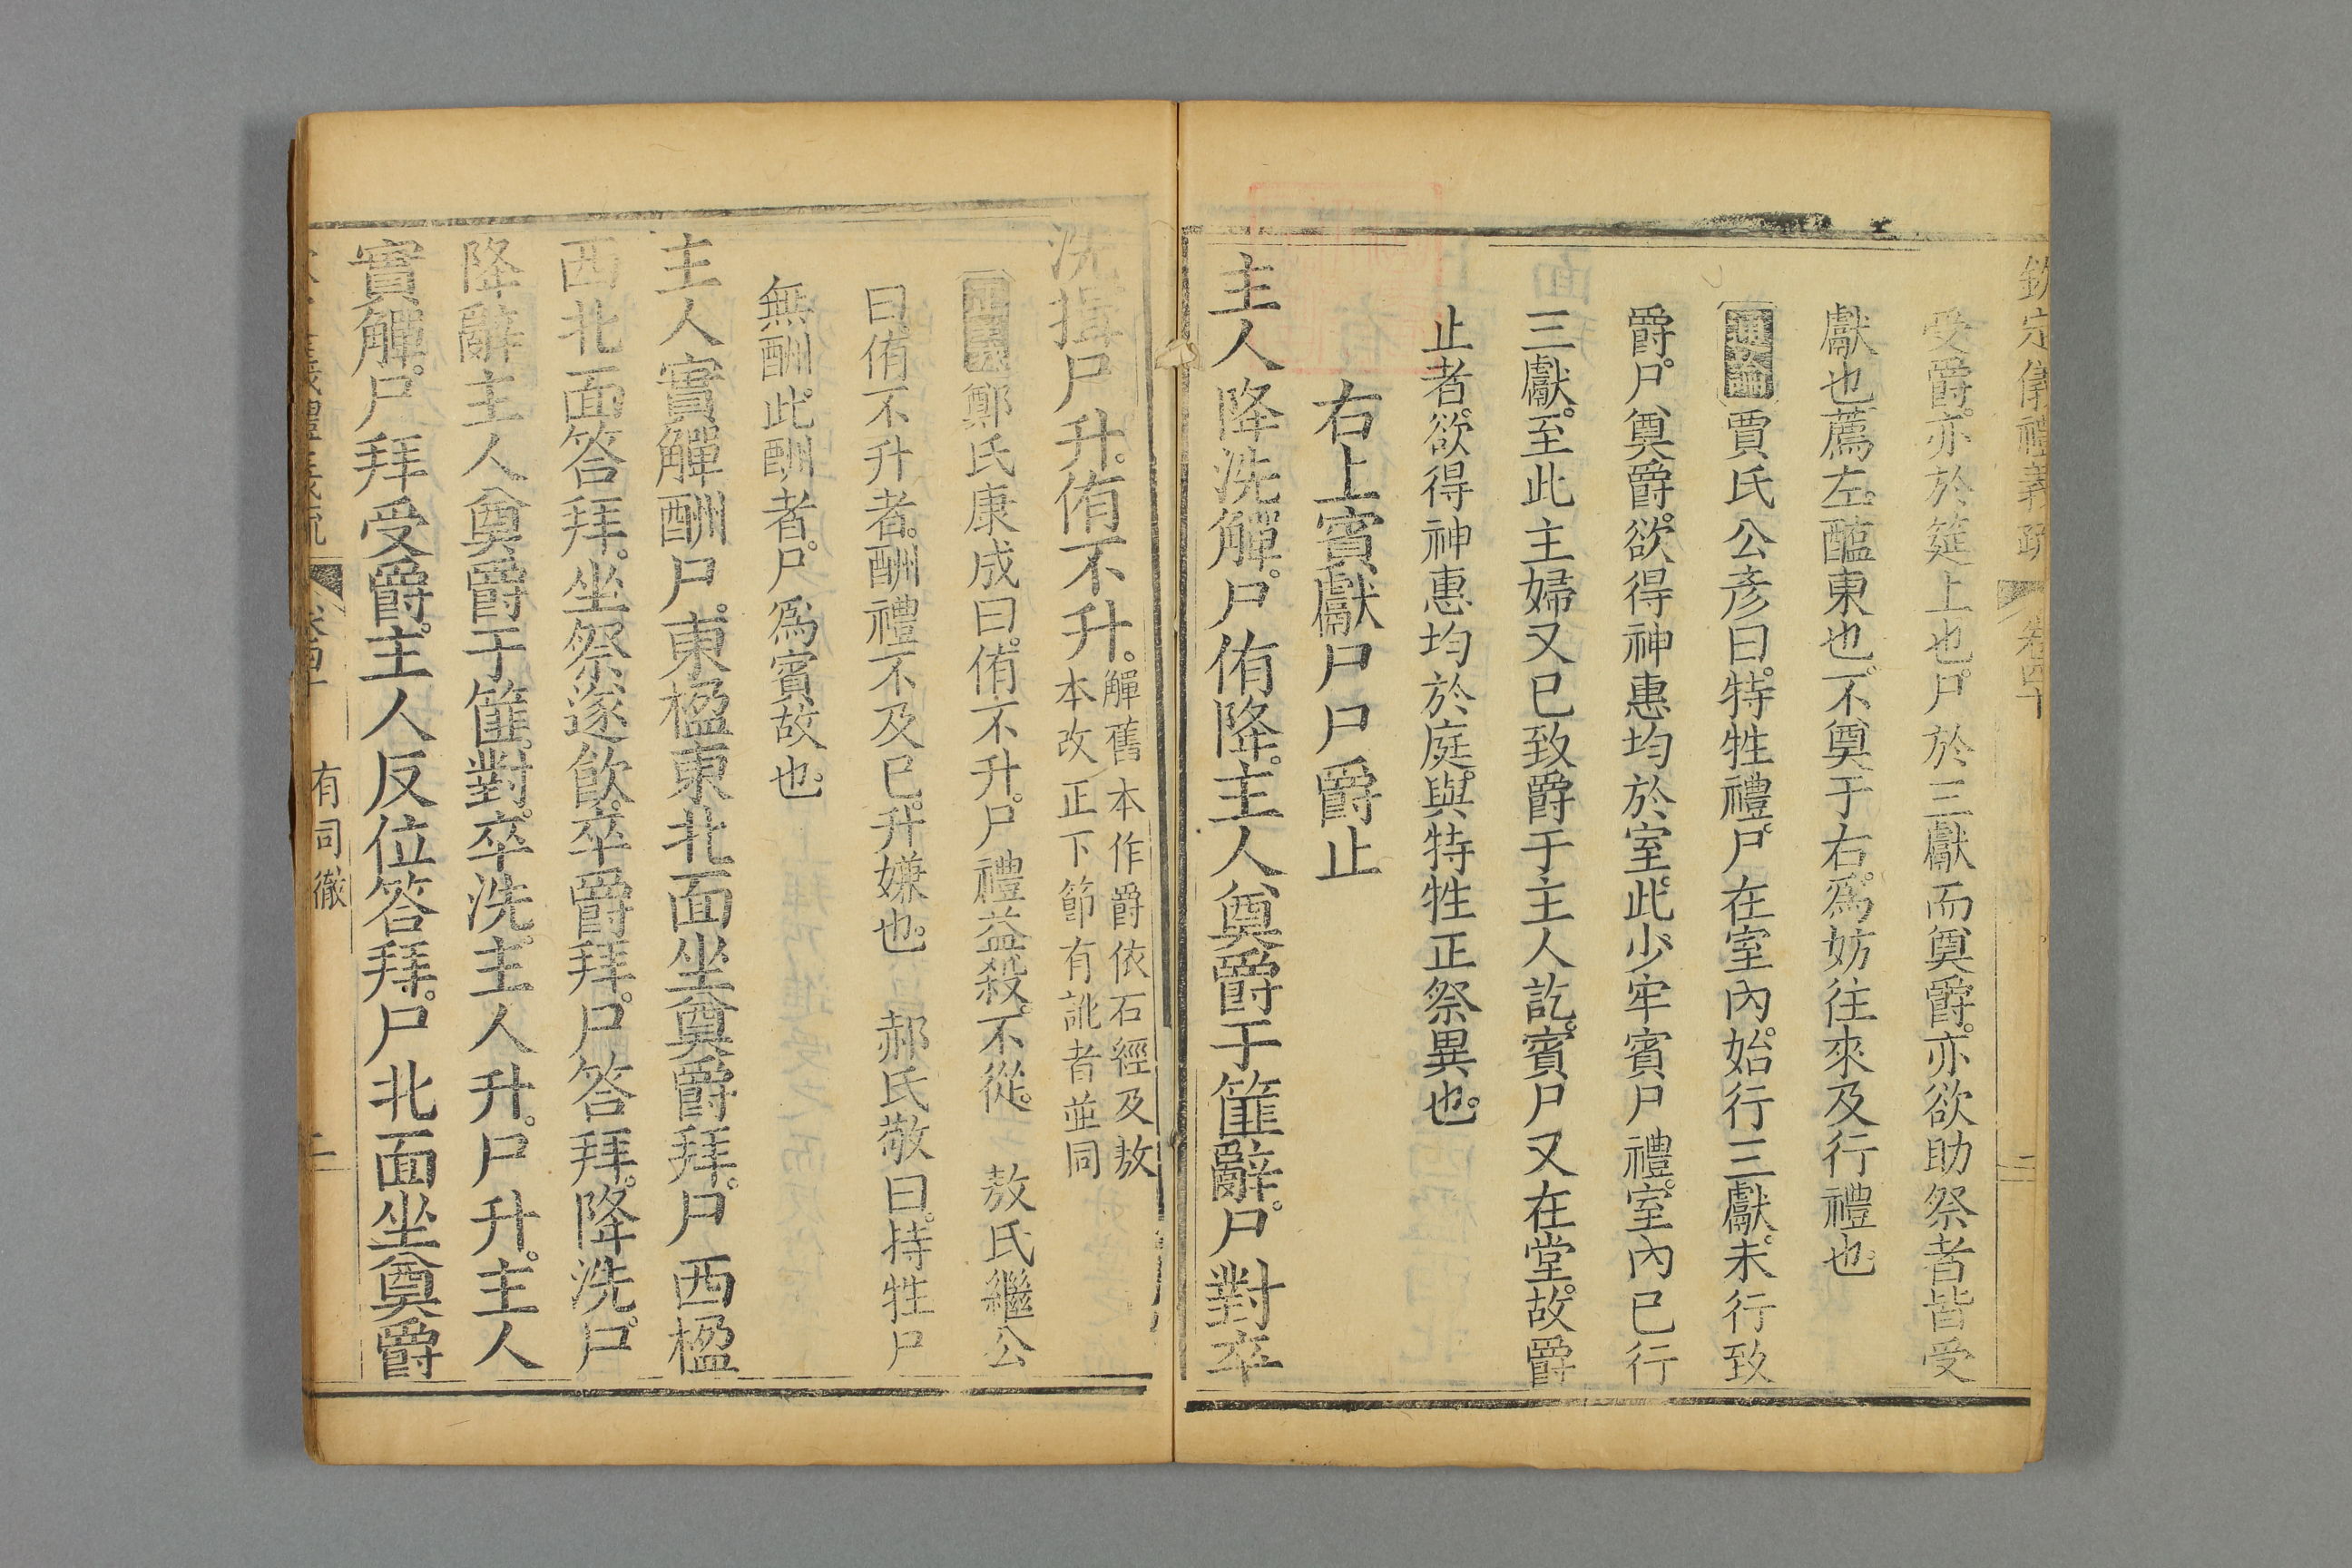 欽定儀禮義疏 卷四十 二
受爵。亦於筵上也。尸於三獻而奠爵。亦欲助祭者皆受
獻也薦左。醢東也。不奠于右。爲妨往來及行禮也。
通論 賈氏公彥曰。特牲禮。尸在室內。始行三獻。未行致
爵。尸奠爵。欲得神惠均於室。此少牢賓尸禮。室內已行
三獻。至此主婦又已致爵于主人訖。賓尸又在堂。故爵
止者。欲得神惠均於庭。與特牲正祭異也。
右上賓獻尸尸爵止
主人降洗觶。尸侑降。主人奠爵于篚辭。尸對卒
洗揖尸升。侑不升。觶舊本作爵依石經及敖本改正下節有訛者並同
正義 鄭氏康成曰。侑不升。尸禮益殺。不從。 敖氏繼公
曰侑不升者。酬禮不及已。升嫌也。 郝氏敬曰。特牲尸
無酬。此酬者。尸爲賓故也。
主人實觶酬尸。東楹東北面坐奠爵拜。尸西楹
西北面答拜。坐祭遂飲。卒爵拜。尸答拜。降洗。尸
降辭主人奠爵于篚。對。卒洗。主人升。尸升。主人
實觶。尸拜受爵。主人反位答拜。尸北面坐奠爵
有司徹 二